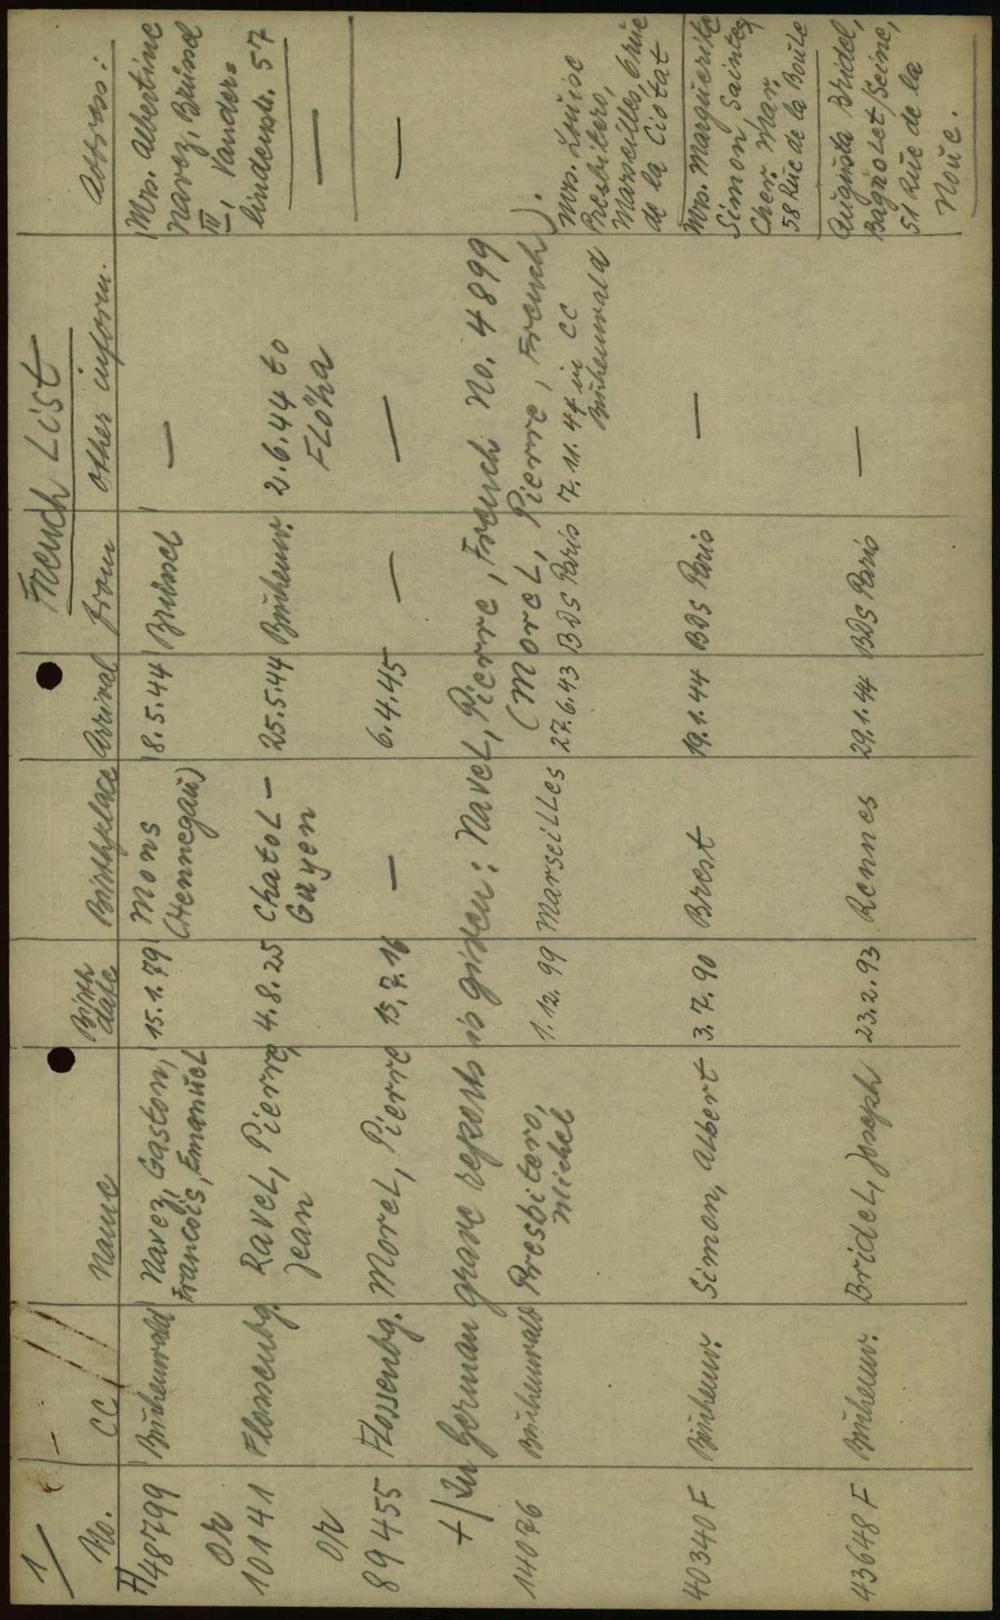 1/
French List
No. CC Name Birth date Birthplace Arrival from other inform. Address:
+/ 48799 Buchenwald Navez, Gaston, 15.1.79 Mons 8.5.44 Brüssel — Mrs. Albertine
François, Emanuel (Hennegau) Navez, Brüssel
III, Vander=
lindenstr. 57
or
10141 Flossenbg. Ravel, Pierre, 4.8.25 Chatol- 25.5.44 Buchenw. 2.6.44 to —
Jean Guyen Flöha
or
89455 Flossenbg. Morel, Pierre 15.7.16 — 6.4.45 — — —
+/ In German grave reports is given: Navel, Pierre, French No. 4899
(Morel, Pierre, French).
14026 Buchenwald Presbitero, 1.12.99 Marseilles 27.6.43 BDS Paris 7.11.44 in CC Mrs. Louise
Michel Buchenwald Presbitero,
Marseilles, 6 rue
de la Ciotat
40340 F Buchenw. Simon, Albert 3.7.90 Brest 19.1.44 BDS Paris — Mrs. Marguerite
Simon, Saintes
Cher. Mar.
58 Rue de la Boule
43648 F Buchenw. Bridel, Joseph 23.2.93 Rennes 29.1.44 BDS Paris — Augusta Bridel,
Bagnolet/Seine,
51 Rue de la
Noue.